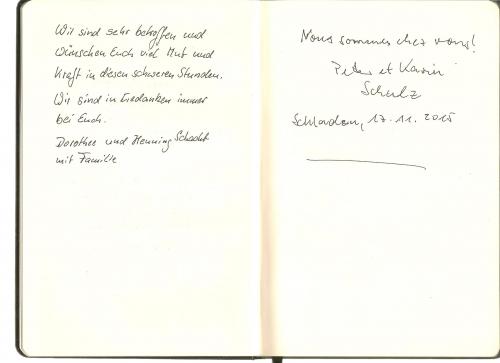 Wir sind sehr betroffen und
wünschen Euch viel Mut und
Kraft in diesen schweren Stunden.
Wir sind in Gedanken immer
bei Euch.
Dorothee und Henning Schacht
mit Familie
Nous sommes chez vous!
Peter et Karin
Schulz
Schladen, 17.11.2015